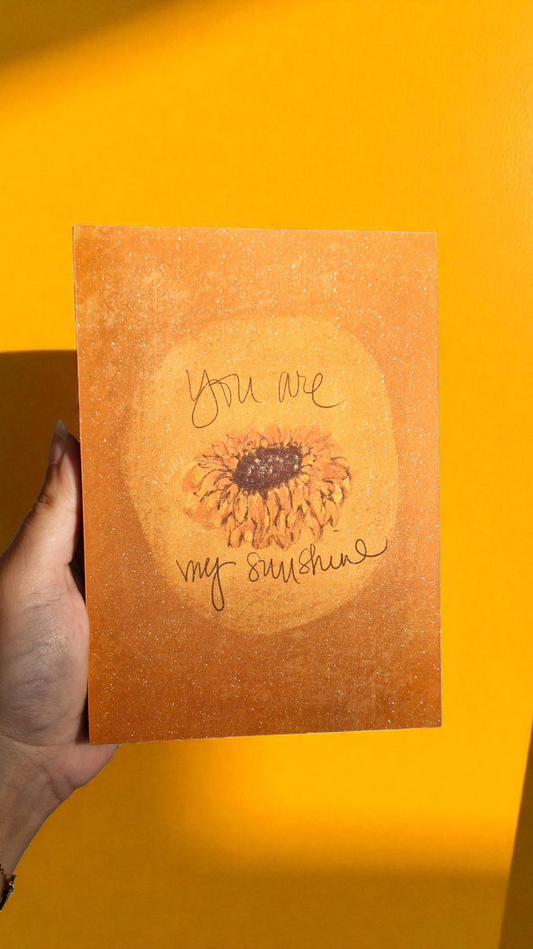 You are
my sunshine